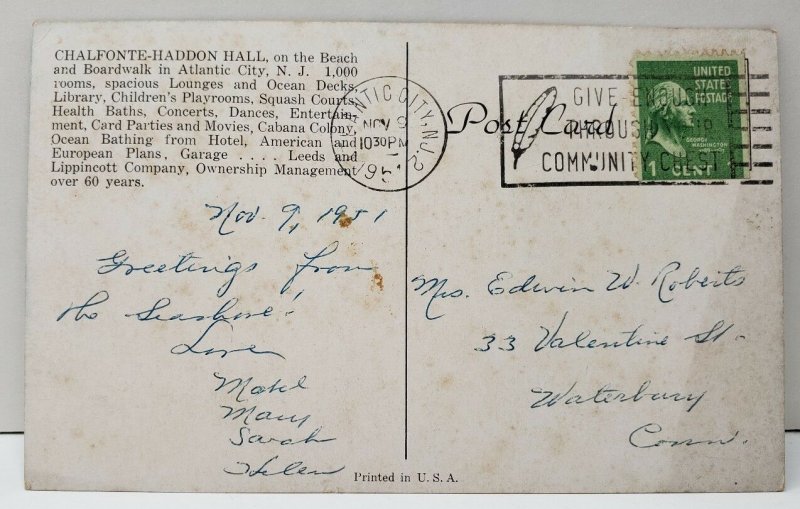 CHALFONTE-HADDON HALL, on the Beach
and Boardwalk in Atlantic City, N. J. 1,000
rooms, spacious Lounges and Ocean Decks,
Library, Children's Playrooms, Squash Courts,
Health Baths, Concerts, Dances, Entertain-
ment, Card Parties and Movies, Cabana Colony,
Ocean Bathing from Hotel, American and
European Plans, Garage .... Leeds and
Lippincott Company, Ownership Management
over 60 years.
Nov. 9, 1951
Greetings from
the Seashore!
Love
Mabel
Mary
Sarah
Helen
ATLANTIC CITY, N.J. 2
NOV 9
10 30 PM
1951
Post Card
GIVE ENOUGH
THROUGH
COMMUNITY CHEST
UNITED
STATES
POSTAGE
GEORGE
WASHINGTON
1 CENT
Mrs. Edwin W. Roberts
33 Valentine St.
Waterbury
Conn.
Printed in U. S. A.